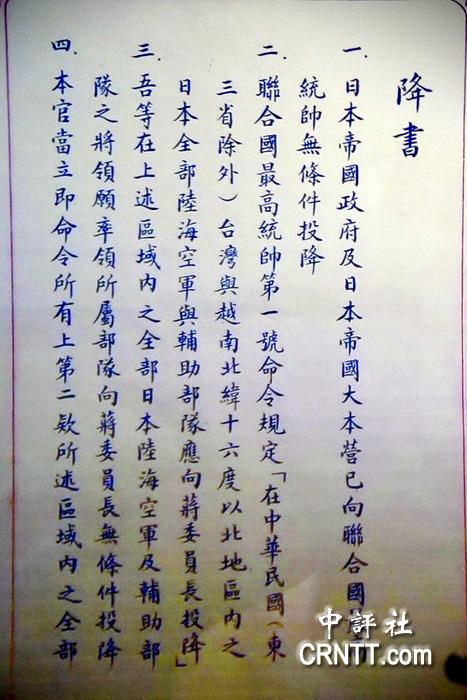 降書
一.日本帝國政府及日本帝國大本營已向聯合國
統帥無條件投降
二.聯合國最高統帥第一號命令規定「在中華民國(東
三省除外)台灣與越南北緯十六度以北地區內之
日本全部陸海空軍與輔助部隊應向蔣委員長投降」
三.吾等在上述區域內之全部日本陸海空軍及輔助部
隊之將領願率領所屬部隊向蔣委員長無條件投降
四.本官當立即命令所有上第二款所述區域內之全部
中評社
CRNTT.com